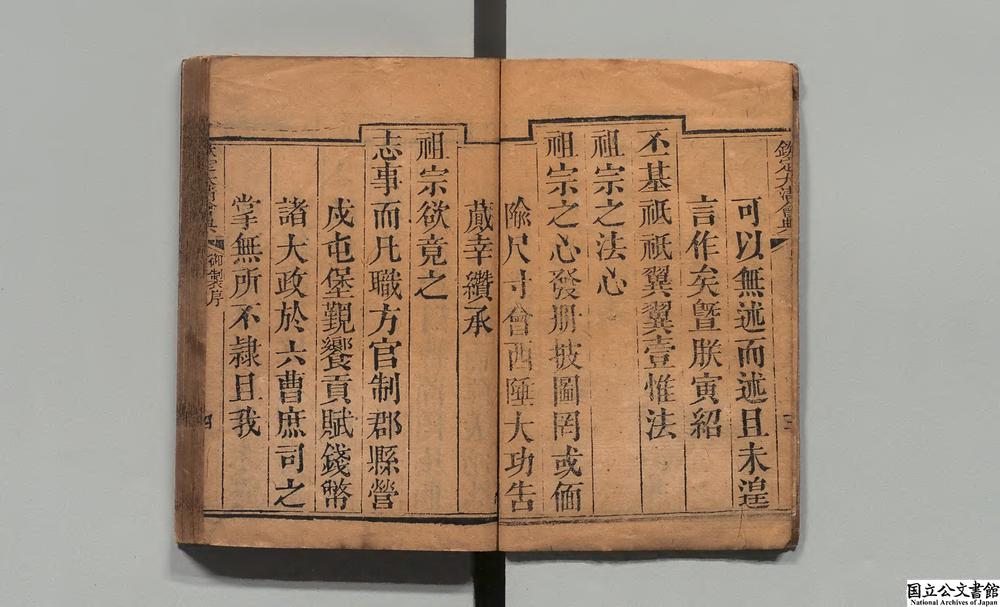 欽定大清會典
可以無述而述且未遑
言作矣曁朕寅紹
丕基祇祇翼翼壹惟法
祖宗之法心
祖宗之心發册披圖罔或偭
隃尺寸會西陲大功告
蕆幸纘承
祖宗欲竟之
志事而凡職方官制郡縣營
戍屯堡覲饗貢賦錢幣
諸大政於六曹庶司之
掌無所不隷且我
御製序
四
国立公文書館
National Archives of Japan